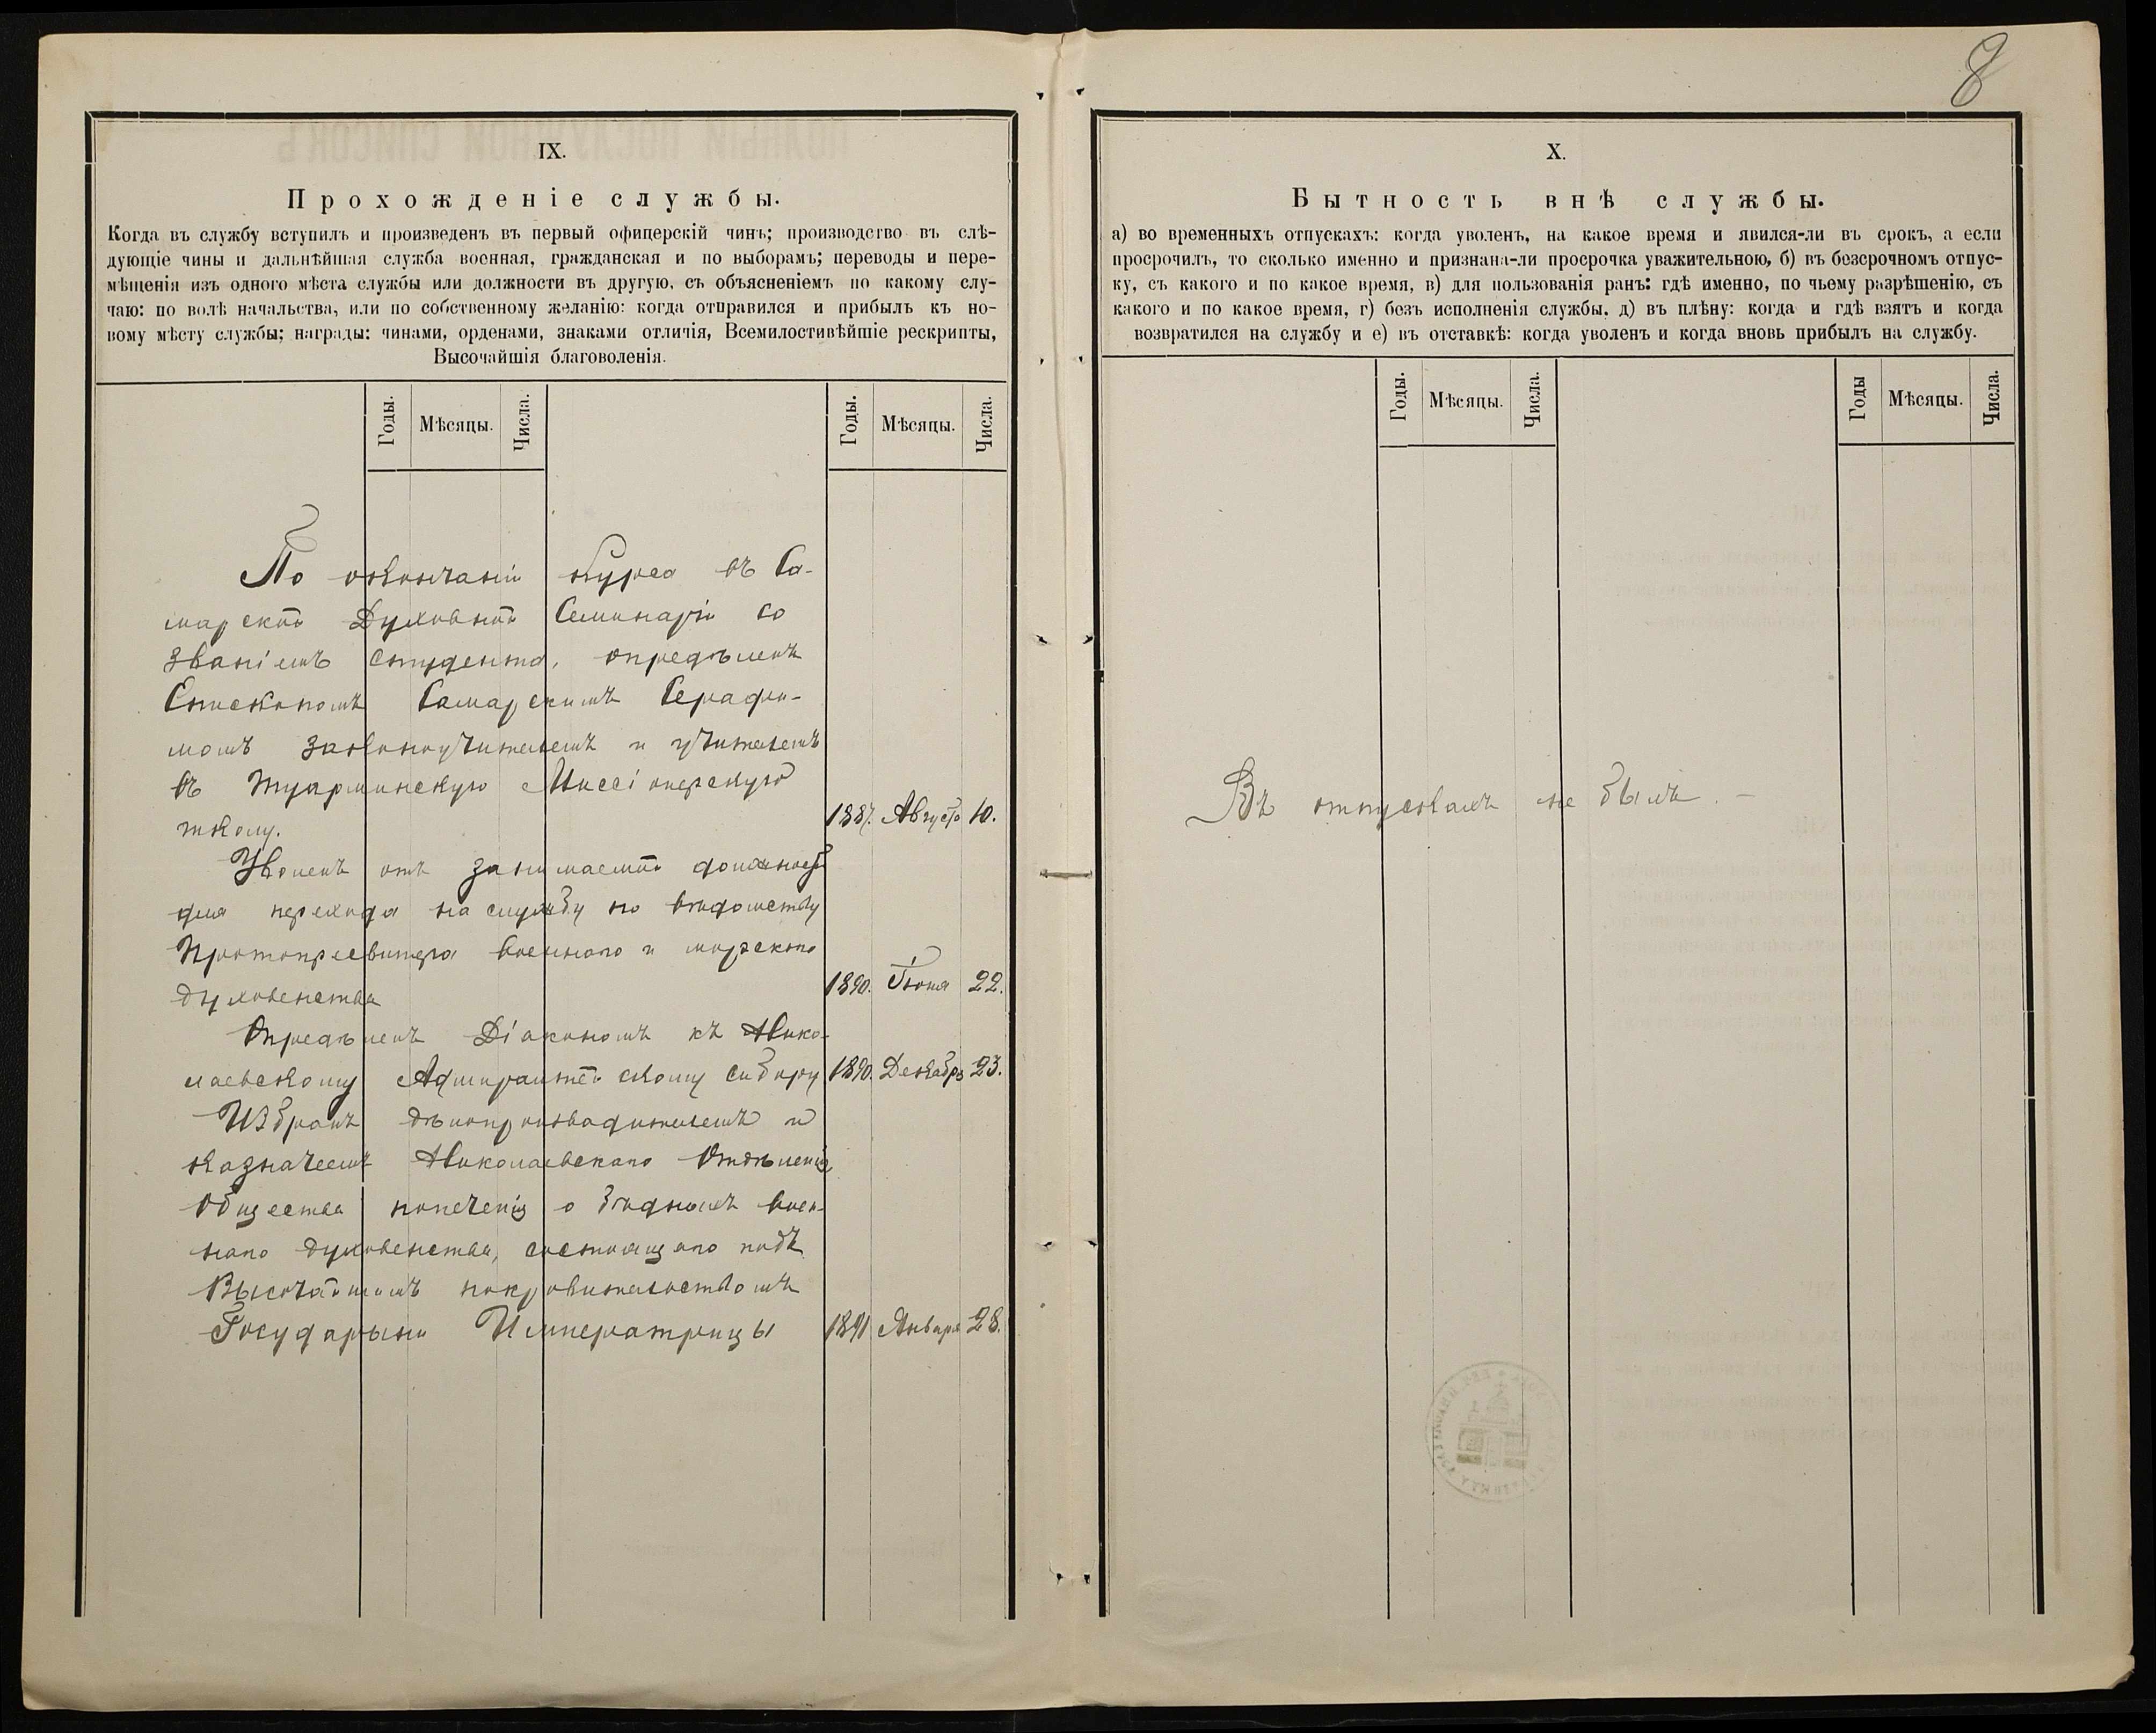 8
IX.
Прохожденіе службы.
Когда въ службу вступилъ и произведенъ въ первый офицерскій чинъ; производство въ слѣ-
дующіе чины и дальнѣйшая служба военная, гражданская и по выборамъ; переводы и пере-
мѣщенія изъ одного мѣста службы или должности въ другую, съ объясненіемъ по какому слу-
чаю: по волѣ начальства, или по собственному желанію: когда отправился и прибылъ къ но-
вому мѣсту службы; награды: чинами, орденами, знаками отличія, Всемилостивѣйшіе рескрипты,
Высочайшія благоволенія.
Годы. Мѣсяцы. Числа. Годы. Мѣсяцы. Числа.
По окончаніи курса въ Са-
марской Духовной Семинаріи со
званіемъ студента, опредѣленъ
Епископомъ Самарскимъ Серафи-
момъ законоучителемъ и учителемъ
въ Туарминскую Миссіонерскую
школу. 1887. Августа 10.
Уволенъ отъ занимаемой должности
для перехода на службу по вѣдомству
Протопресвитера военнаго и морского
духовенства 1890. Іюня 22.
Опредѣленъ Діакономъ къ Нико-
лаевскому Адмиралтейскому Собору 1890. Декабря 23.
Избранъ дѣлопроизводителемъ и
казначеемъ Николаевскаго Отдѣленія
Общества попеченія о бѣдныхъ воен-
наго духовенства, состоящаго подъ
Высочайшимъ покровительствомъ
Государыни Императрицы 1891 Января 28.
X.
Бытность внѣ службы.
а) во временныхъ отпускахъ: когда уволенъ, на какое время и явился-ли въ срокъ, а если
просрочилъ, то сколько именно и признана-ли просрочка уважительною, б) въ безсрочномъ отпус-
ку, съ какого и по какое время, в) для пользованія ранъ: гдѣ именно, по чьему разрѣшенію, съ
какого и по какое время, г) безъ исполненія службы, д) въ плѣну: когда и гдѣ взятъ и когда
возвратился на службу и е) въ отставкѣ: когда уволенъ и когда вновь прибылъ на службу.
Годы. Мѣсяцы. Числа. Годы Мѣсяцы. Числа.
Въ отпускахъ не былъ. —